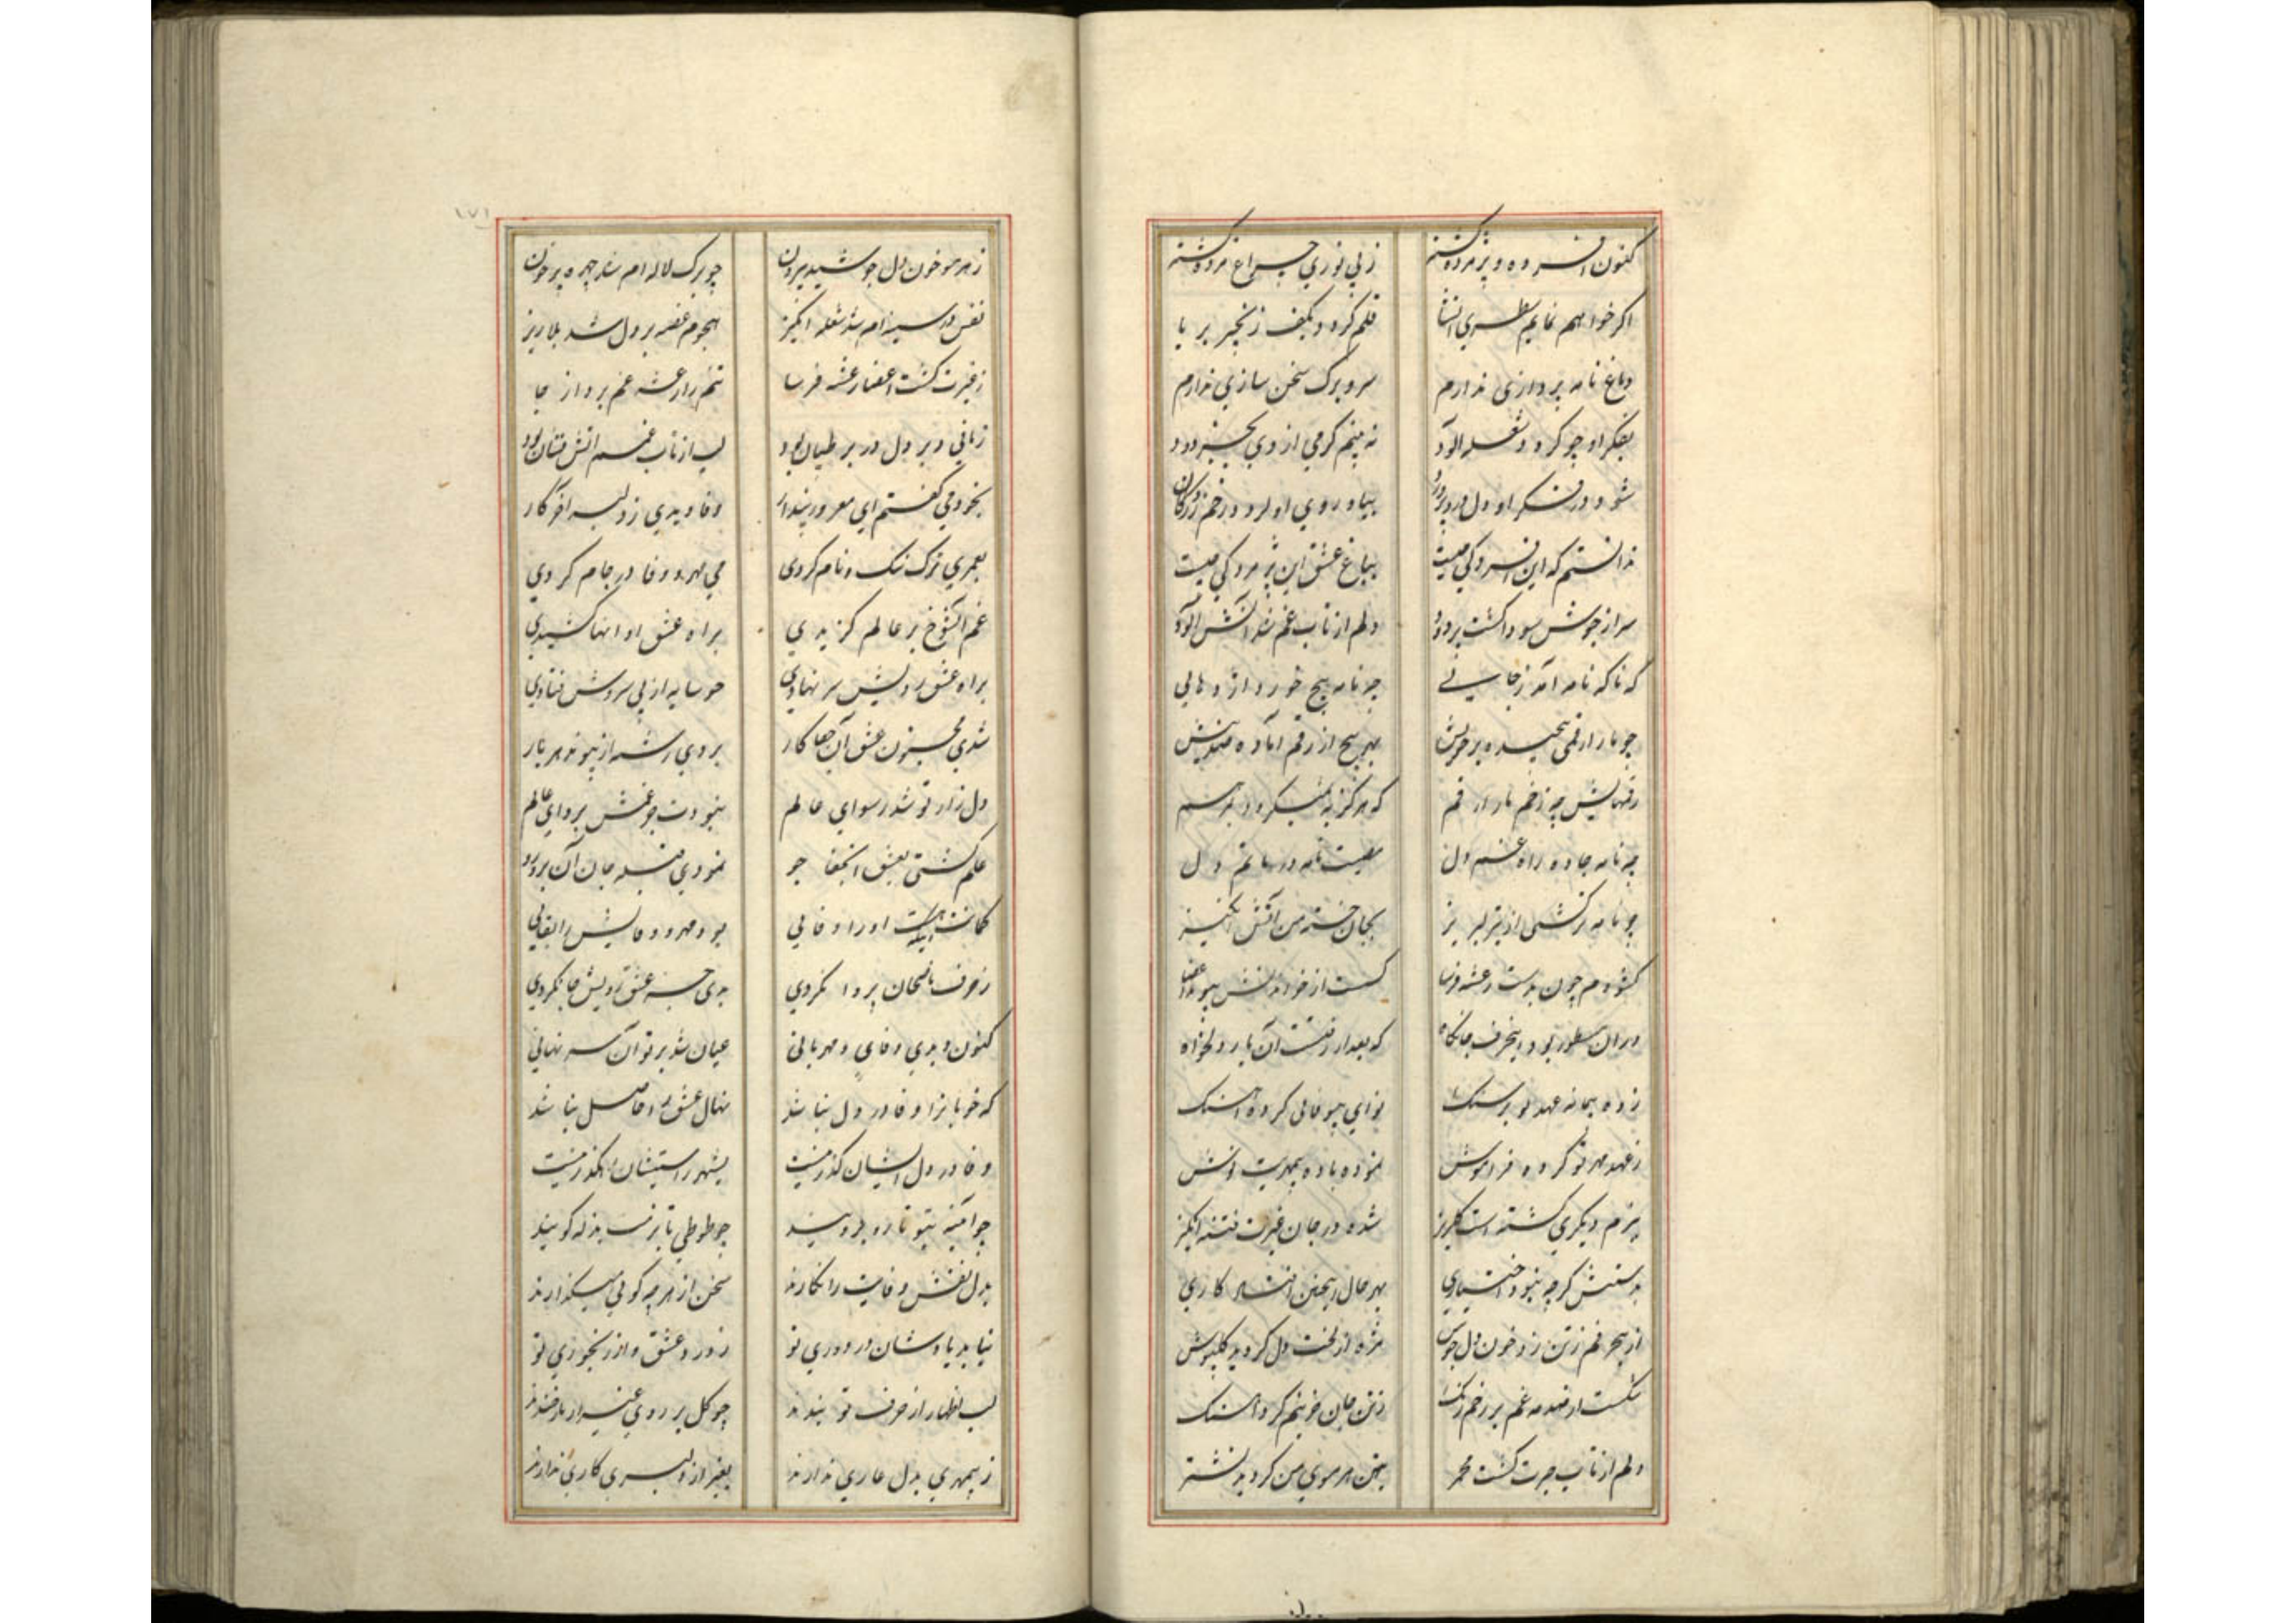 کنون افسرده و پژمرده گشته ز بی نوری چراغ مرده گشته
اکر خواهم نمایم سطری انشا قلم کردد بکف زنجیر بر پا
دماغ نامه پردازی ندارم سر و برک سخن سازی ندارم
بفکر او چو کردد شعله الود نه بینم کرمی از وی بجز دود
شود در فکر او دل درد پرورد بیاد روی او
ندانستم که این افسردکی چیست بباغ عشق این پژمردکی چیست
سر از جوش سودا کشت پر دود دلم از تاب غم شد آتش آلود
که ناکه نامه آمد ز جایی چه نامه پیچ خورده اژدهایی
چو مار ارقمی پیچیده بر خویش بهر پیچ از رقم آماده نیش
رقمهایش چه زخم مار ارقم که هرکز به نمیکردد بمرهم
چه نامه جاده راه غم دل مصیبت نامه در ماتم دل
چو نامه ترکشی از تیر لبریز بجان خسته من آتش انکیز
کشودم چون بدست رعشه فرسا کسست از خواندنش پیوند اعضا
در آن سطور بود اینحرف جانکاه که بعد از رفتنت آن یار دلخواه
زده پیمانه عهد تو بر سنک نوای بیوفائی کرده آهنک
ز عهد مهر تو کرده فراموش نموده باده بیمهریت نوش
ببزم دیکری کشته است کلریز شده در جان غیرت فتنه انکیز
بدستش کرچه نبود اختیاری بهر حال اینچنین افتاد کاری
ازین حرفم ز تن زد خون دل جوش مژه از لخت دل کردید کلپوش
شکست از صدمه غم بر رخم رنک ز تن جان حزینم کرد آهنک
دلم از تاب حیرت کشت مجمر بتن هر موی من کردید نشتر
۱۷۱
ز هر مو خون دل جوشید بیرون چو برک لاله ام شد چهره پر خون
نفس در سینه ام شد شعله انکیز هجوم غصه بر دل شد بلا ریز
ز غیرت کشت اعضا رعشه فرسا تنم را رعشه غم برد از جا
زمانی دیر دل در بر طپان بود لب از تاب غم آتش فشان بود
بخود می کفتم ای مغرور پندار وفا دیدی ز دلبر آخر کار
بعمری ترک ننک و نام کردی می مهر و وفا در جام کردی
غم آنشوخ بر عالم کزیدی براه عشق او آنها کشیدی
براه عشق رویش سر نهادی چو سایه از پی سروش فتادی
شدی مجنون عشق آن جفا کار بریدی رشته از پیوند هر یار
دل زار تو شد رسوای عالم نبودت جز غمش پروای عالم
علم کشتی بعشق آنجفا جو نمودی قبله جان آن برو رو
کمانت اینکه هست او را وفایی بود مهر و وفایش را بقایی
ز حرف ناصحان پروا نکردی بدی جز عشق رویش جا نکردی
کنون دیدی وفای و مهربانی عیان شد بر تو آن سر نهانی
که خوبانرا وفا در دل نباشد نهال عشق را حاصل نباشد
وفا در دل ایشان کذر نیست بشهر راستیشان رهکذر نیست
چو آئینه بتو تا رو برویند چو طوطی تا برت بذله کویند
بدل نقش وفایت را نکارند سخن از هر چه کویی میکذارند
نیاید یادشان در دوری تو ز درد عشق و از رنجوری تو
لب اظهار از حرف تو بندند چو کل بر روی غیر از ناز خندند
ز بیمهری بدل عاری ندارند بغیر از دلبری کاری ندارند